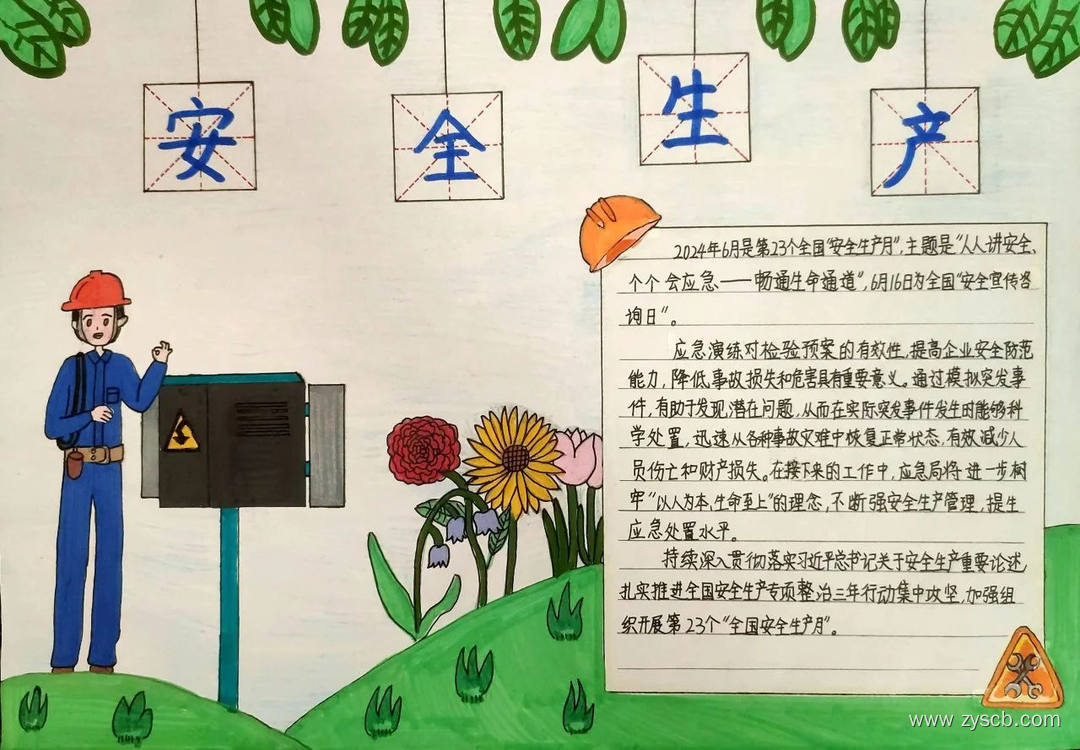 安全生产
2024年6月是第23个全国“安全生产月”,主题是“人人讲安全、
个个会应急——畅通生命通道”,6月16日为全国“安全宣传咨
询日”。
应急演练对检验预案的有效性,提高企业安全防范
能力,降低事故损失和危害具有重要意义。通过模拟突发事
件,有助于发现潜在问题,从而在实际突发事件发生时能够科
学处置,迅速从各种事故灾难中恢复正常状态,有效减少人
员伤亡和财产损失。在接下来的工作中,应急局将进一步树
牢“以人为本,生命至上”的理念,不断强安全生产管理,提生
应急处置水平。
持续深入贯彻落实习近平总书记关于安全生产重要论述,
扎实推进全国安全生产专项整治三年行动集中攻坚,加强组
织开展第23个“全国安全生产月”。
www.zyscb.com